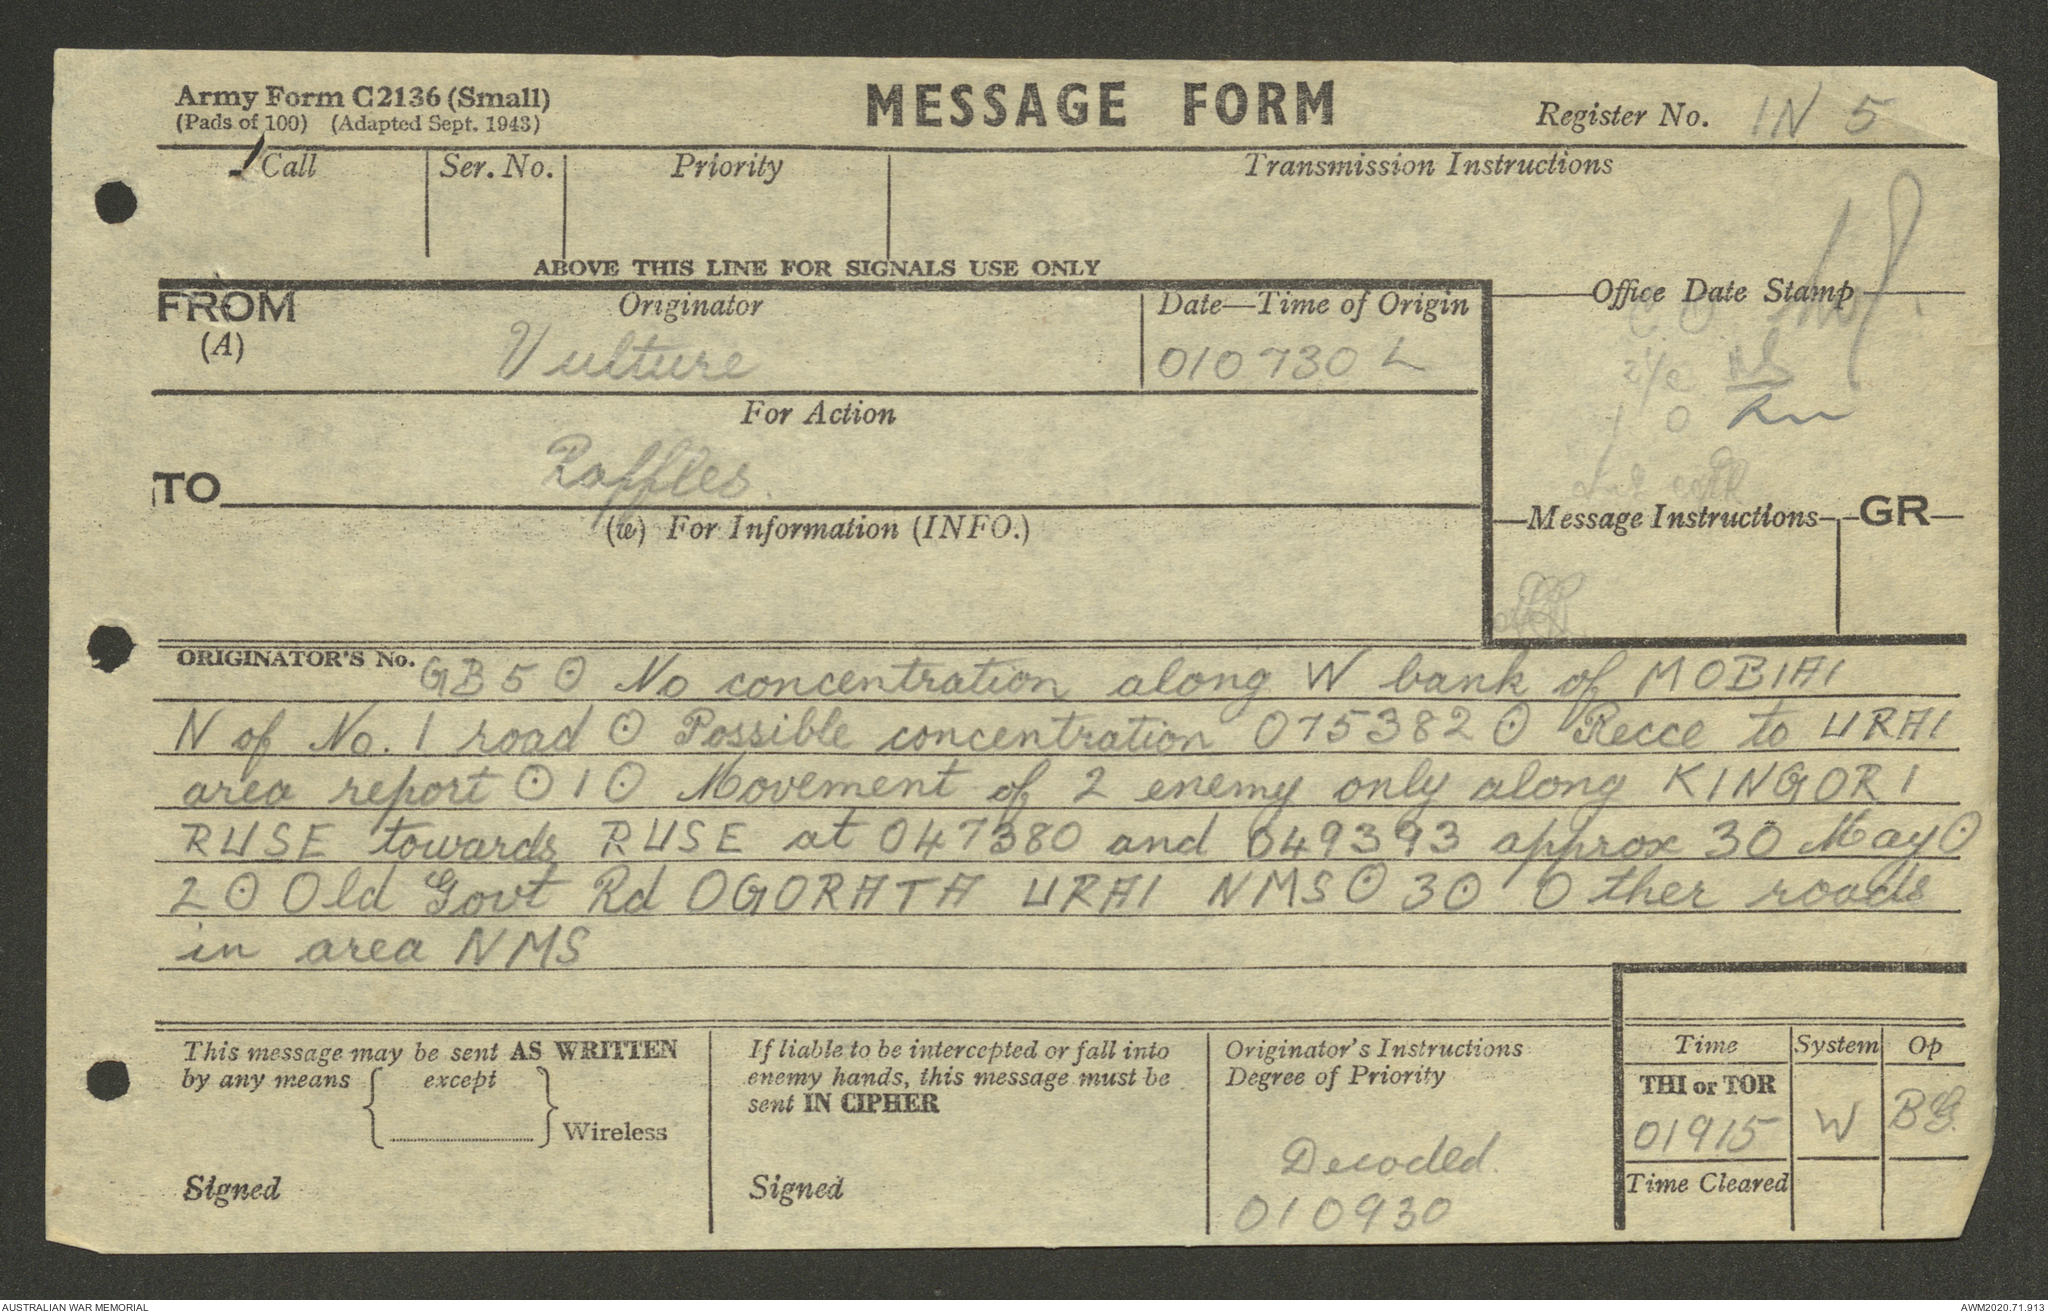 Army Form C2136 (Small)
(Pads of 100) (Adapted Sept. 1943)
MESSAGE FORM
Register No. IN 5
Call Ser. No. Priority Transmission Instructions
ABOVE THIS LINE FOR SIGNALS USE ONLY
FROM
(A)
Originator
Vulture
Date—Time of Origin
010730 L
Office Date Stamp
For Action
TO
Raffles.
(w) For Information (INFO.)
Message Instructions GR
ORIGINATOR'S No.
GB5 ⊙ No concentration along W bank of MOBIAI
N of No. 1 road ⊙ Possible concentration 075382 ⊙ Recce to URAI
area report ⊙ 1 ⊙ Movement of 2 enemy only along KINGORI
RUSE towards RUSE at 047380 and 049393 approx 30 May ⊙
2 ⊙ Old Govt Rd OGORATA URAI NMS ⊙ 3 ⊙ Other roads
in area NMS
This message may be sent AS WRITTEN
by any means { except } Wireless
Signed
If liable to be intercepted or fall into
enemy hands, this message must be
sent IN CIPHER
Signed
Originator's Instructions
Degree of Priority
Decoded.
010930
Time System Op
THI or TOR
01915 W BG.
Time Cleared
AUSTRALIAN WAR MEMORIAL
AWM2020.71.913